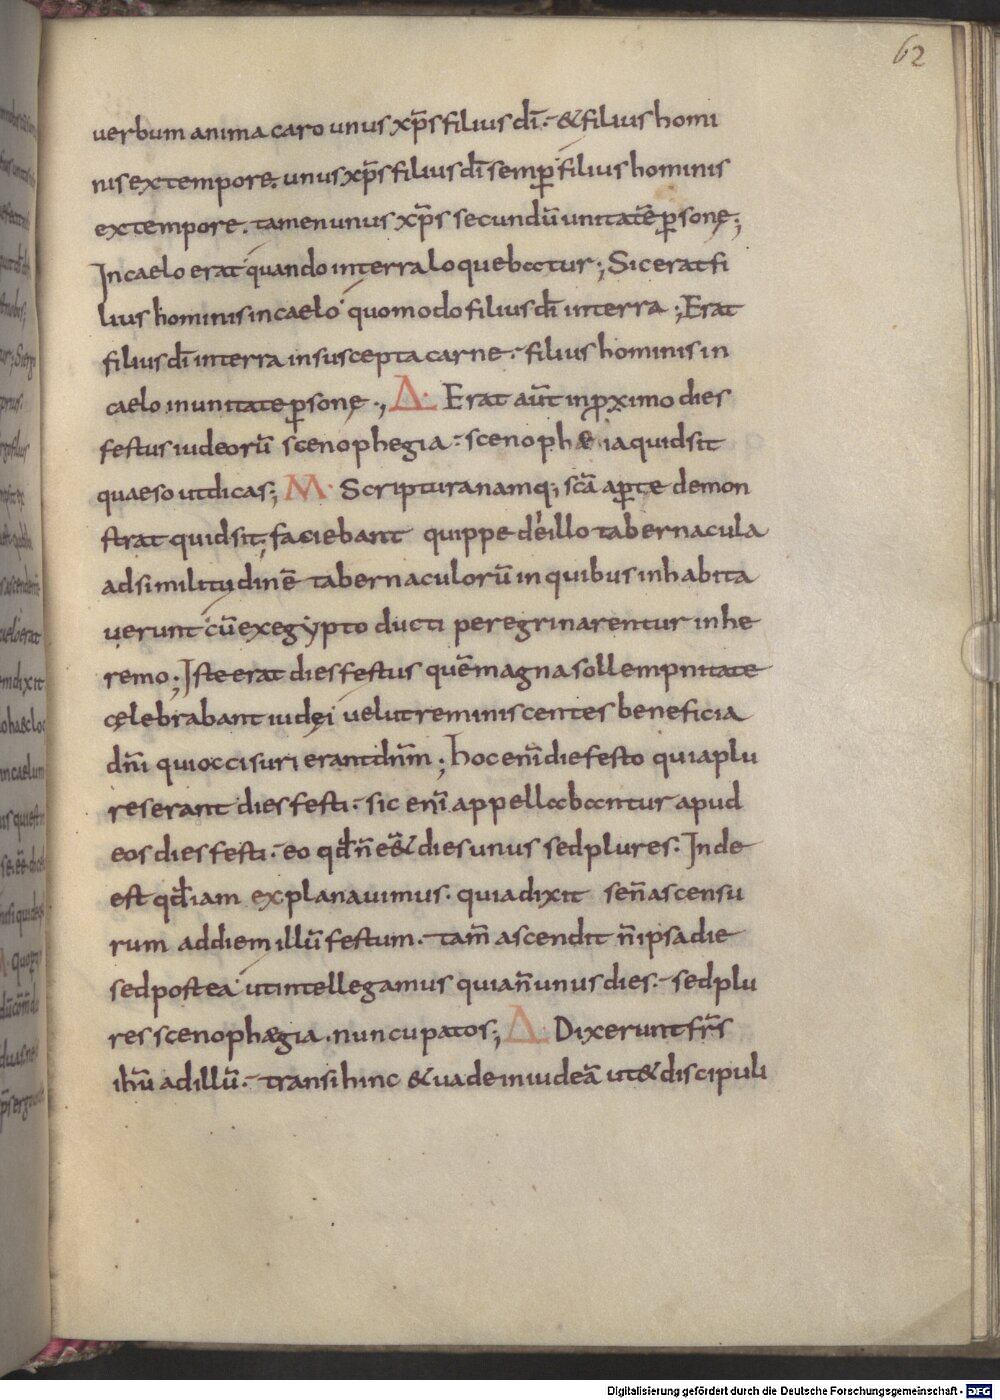 62
uerbum anima caro unus xp̄s filius dī. &filius homi
nis ex tempore. unus xp̄s filius dī semp̄ filius hominis
ex tempore. tamen unus xp̄s secundū unitatē p̄sonę;
In caelo erat quando in terra loquebatur; Sic erat fi
lius hominis in caelo quomodo filius dī in terra; Erat
filius dī in terra in suscepta carne. filius hominis in
caelo in unitate p̄sonę., Δ. Erat aūt in p̄ximo dies
festus iudeorū scenophegia. scenophæ ia quid sit
quaeso ut dicas; M. Scriptura namq; scā ap̄te demon
strat quid sit; faciebant quippe de illo tabernacula
ad similitudinē tabernaculorū in quibus inhabita
uerunt cū ex egẏpto ducti peregrinarentur in he
remo; Iste erat dies festus quē magna sollempnitate
cęlebrabant iudęi uelut reminiscentes beneficia
dn̄i qui occisuri erant dn̄m; hoc enī die festo quia plu
res erant dies festi. sic enī appellabantur apud
eos dies festi. eo qđ n̄ eēt dies unus sed plures. Inde
est qđ iam explanauimus. quia dixit se n̄ ascensu
rum ad diem illū festum. tam̄ ascendit n̄ ipsa die
sed postea ut intellegamus quia n̄ unus dies. sed plu
res scenophægia. nuncupatos; Δ. Dixerunt fr̄s
ihū ad illū. transi hinc & uade in iudeā ut & discipuli
Digitalisierung gefördert durch die Deutsche Forschungsgemeinschaft - DFG